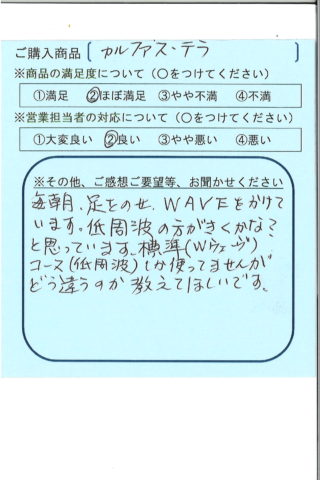 ご購入商品〔カルファス・テラ〕
※商品の満足度について（○をつけてください）
①満足 ②ほぼ満足 ③やや不満 ④不満
※営業担当者の対応について（○をつけてください）
①大変良い ②良い ③やや悪い ④悪い
※その他、ご感想ご要望等、お聞かせください
毎朝、足をのせ、WAVEをかけて
います。低周波の方がきくかな？
と思っています。標準(Wウェーヴ)
コース(低周波)しか使ってませんが
どう違うのか教えてほしいです。